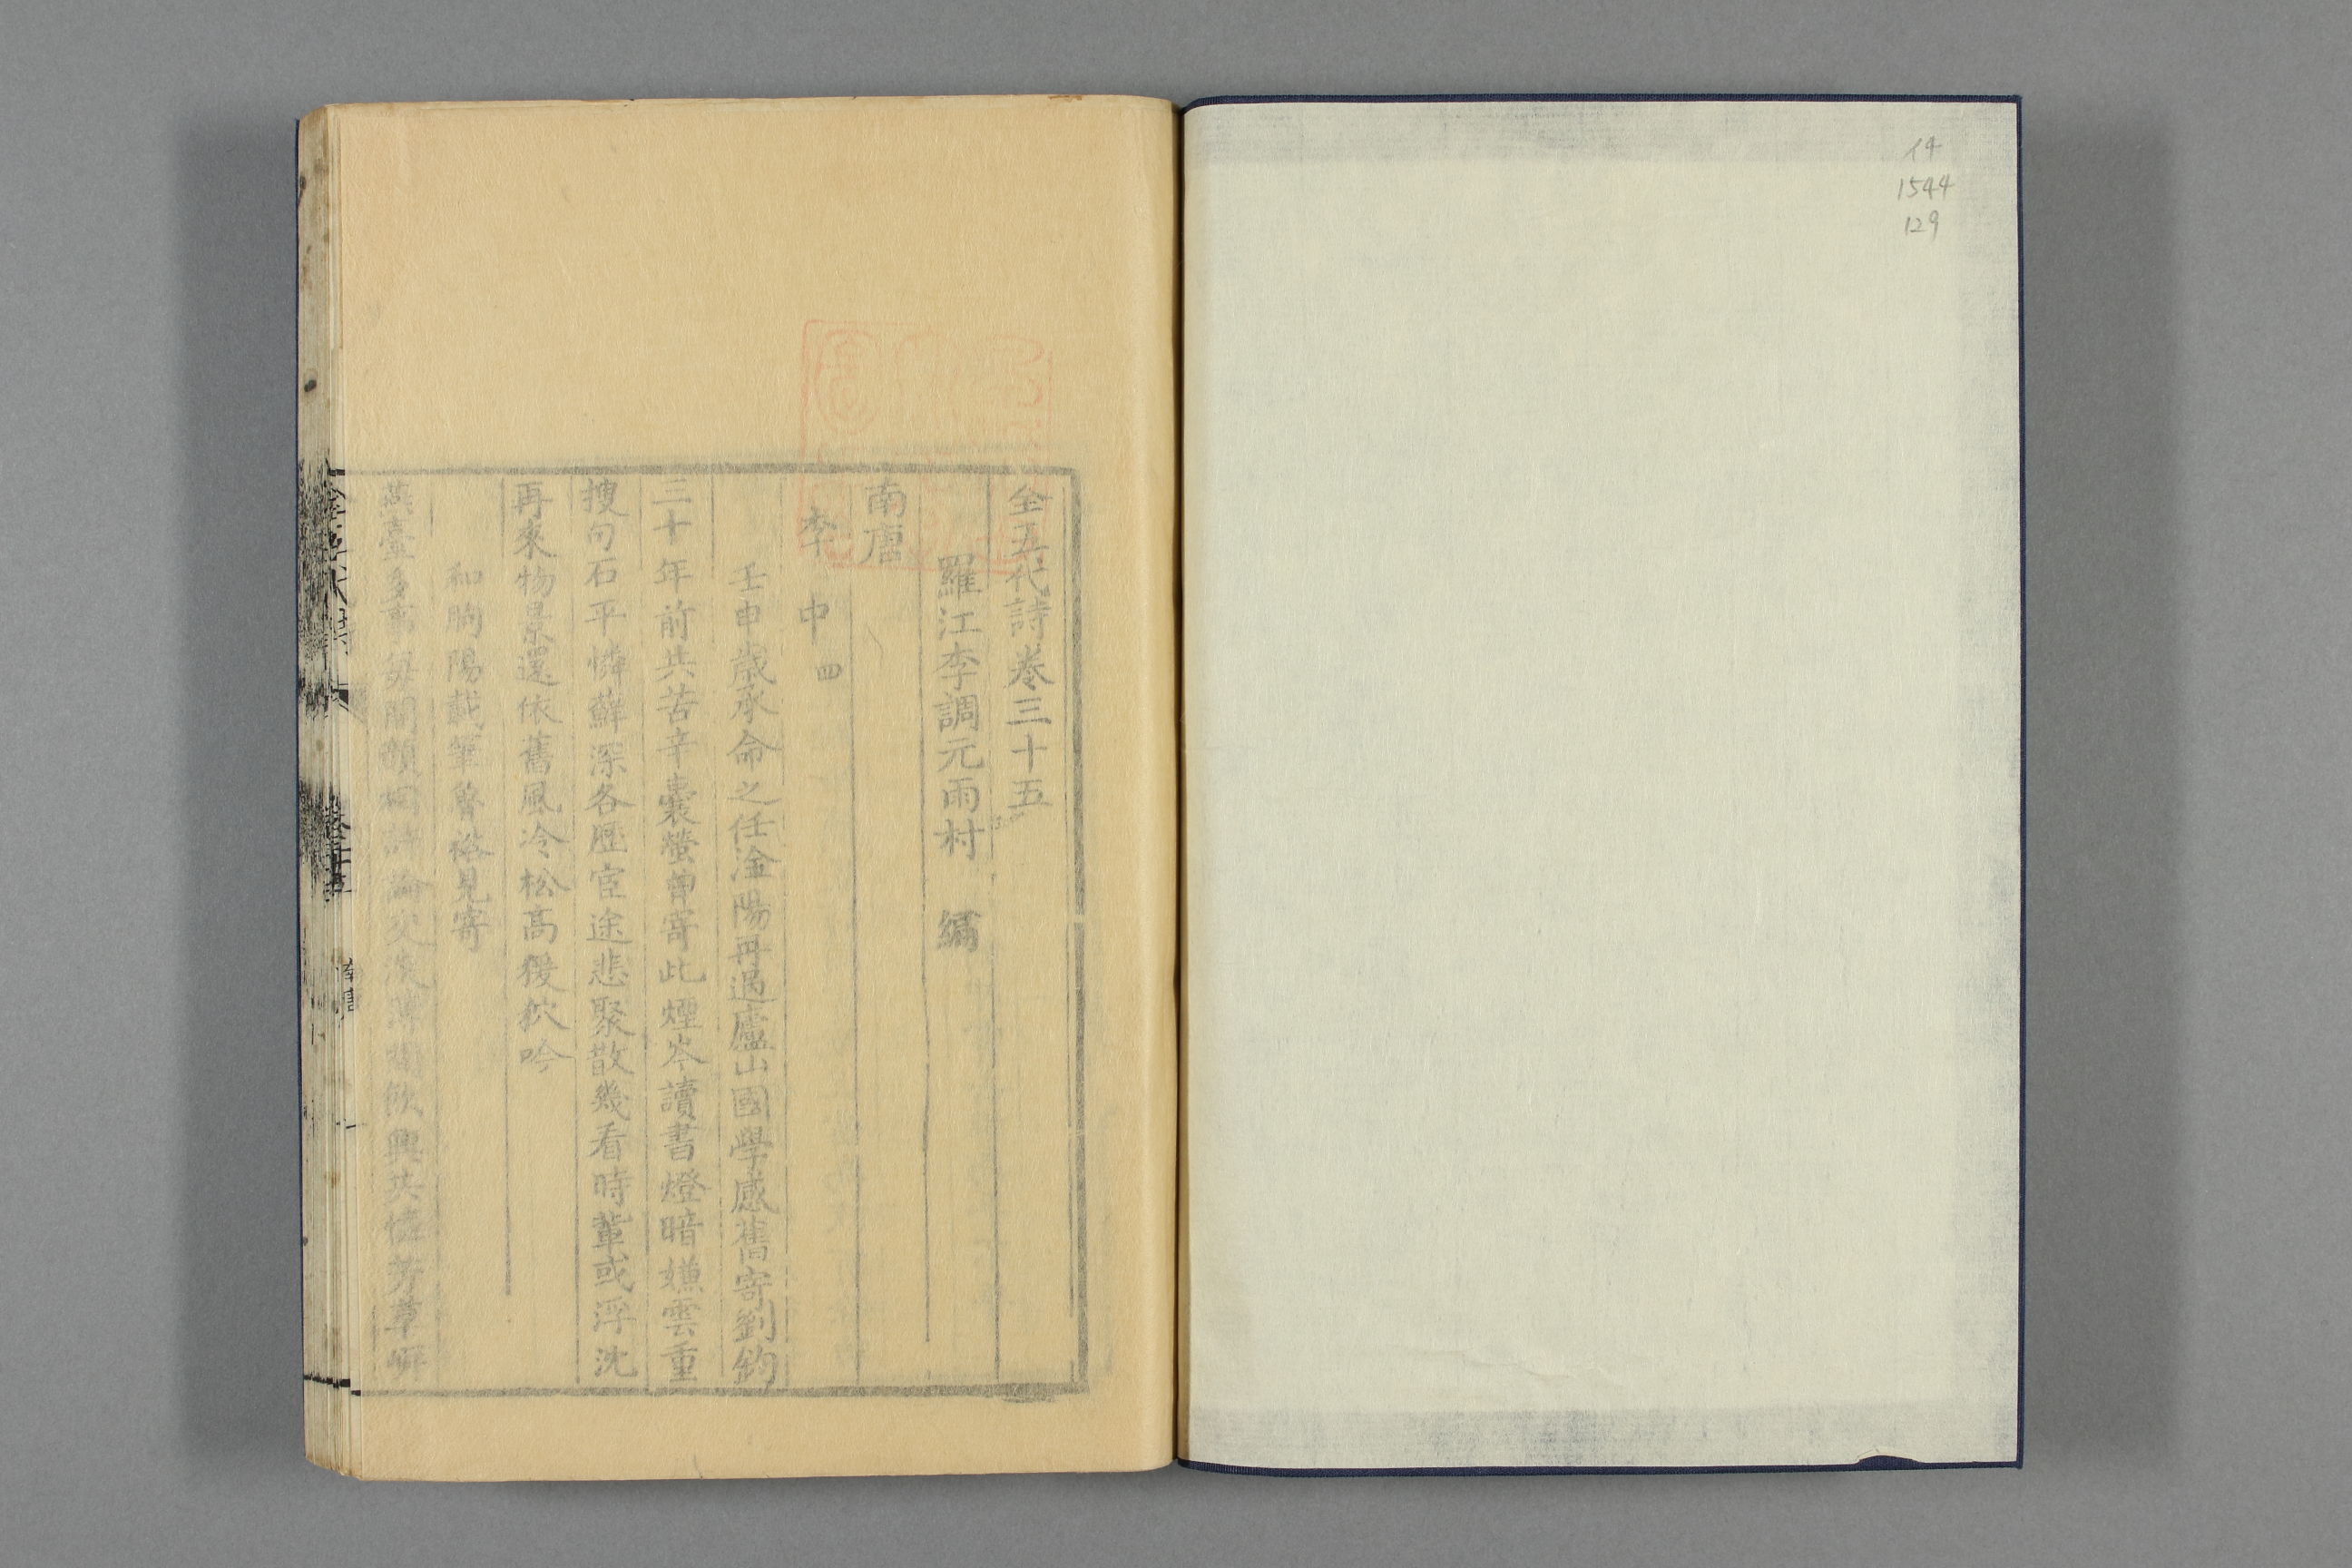 14
1544
129
全五代詩卷三十五
羅江李調元雨村 編
南唐
李 中 四
壬申歲承命之任淦陽再過廬山國學感舊寄劉鈞
三十年前共苦辛囊螢曾寄此煙岑讀書燈暗嫌雲重
搜句石平憐蘚深各歷宦途悲聚散幾看時輩或浮沈
再來物景還依舊風冷松高猨狖吟
和朐陽載筆魯裕見寄
燕臺多事每開顏相許論交淡薄間飲興共憐芳草岸